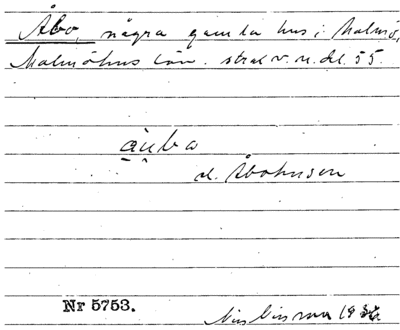 Åbo, några gamla hus i Malmö,
Malmöhus län. strax v. n. del. 55.
åuba
d. Åbohusen
Nr 5753.
193